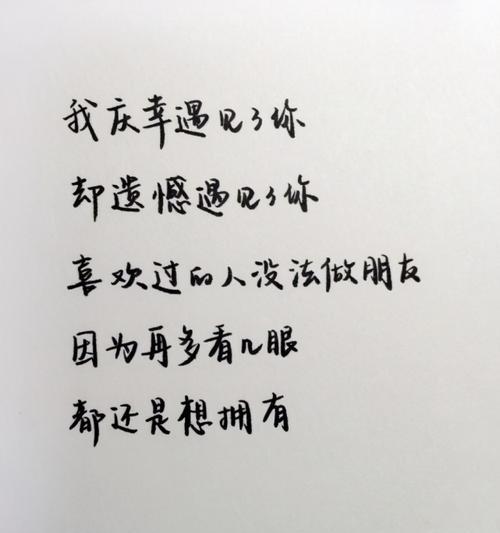 我庆幸遇见了你
却遗憾遇见了你
喜欢过的人没法做朋友
因为再多看几眼
都还是想拥有